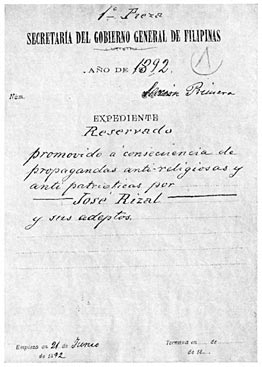 1ª Pieza
SECRETARÍA DEL GOBIERNO GENERAL DE FILIPINAS
AÑO DE 1892.
1
Núm.
Sección Primera
EXPEDIENTE
Reservado
promovido á consecuencia de
propagandas anti-religiosas y
anti patrióticas por
José Rizal
y sus adeptos.
Empieza en 21 de Junio
de 1892
Termina en de
de 18